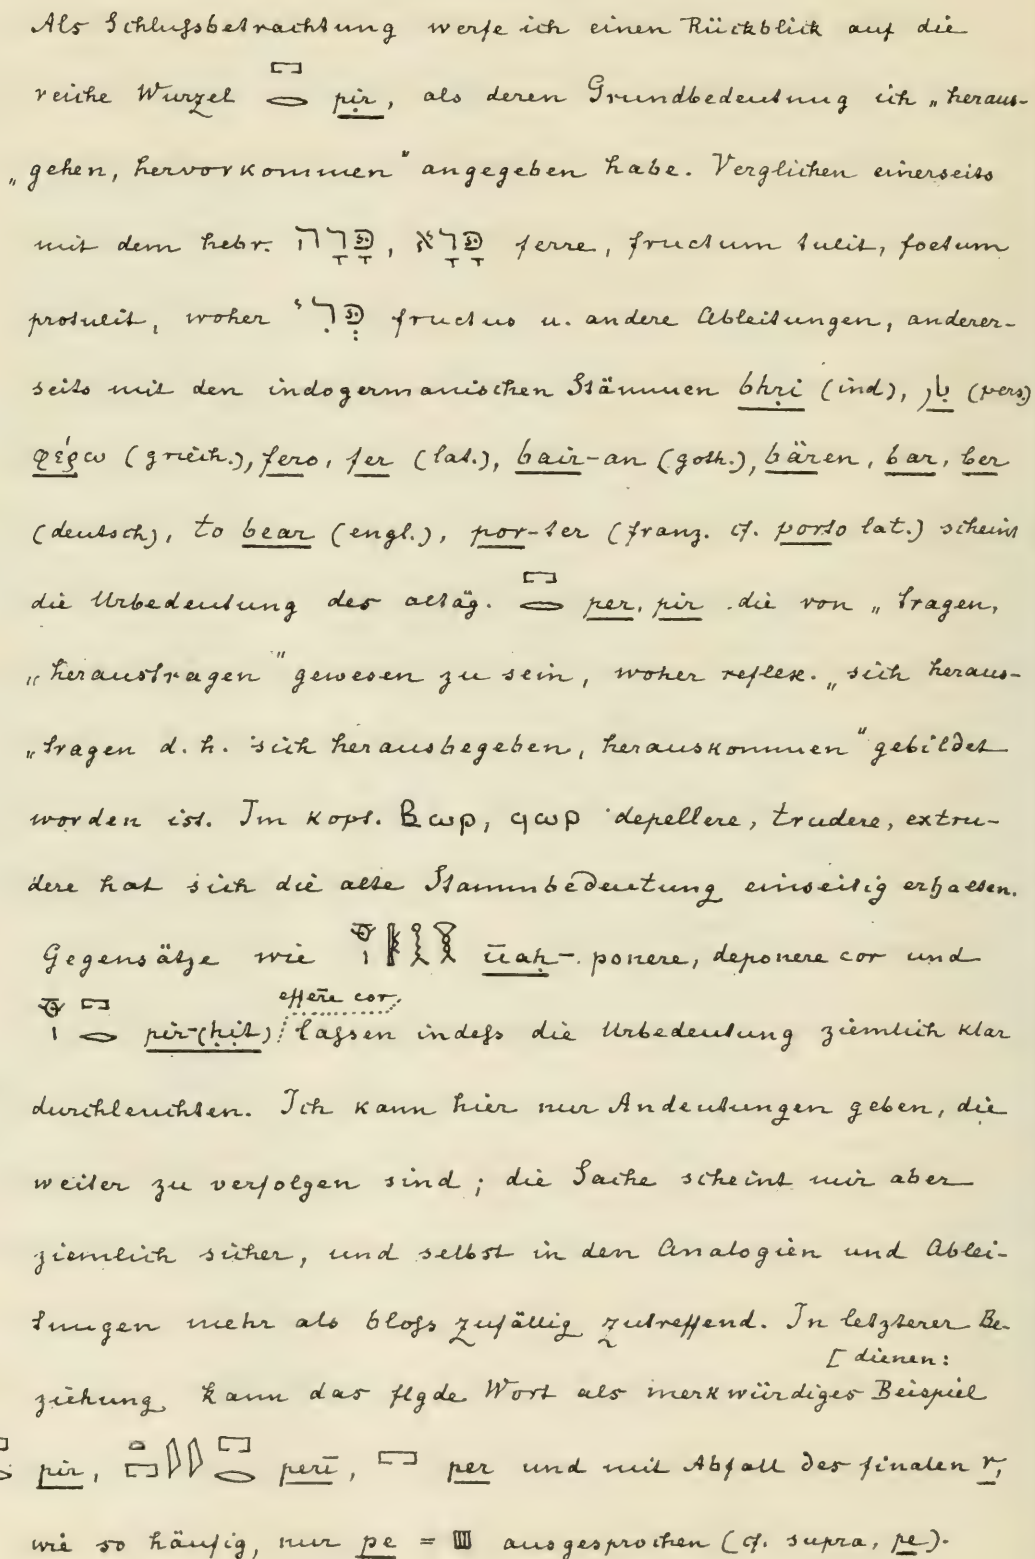 Als Schlußbetrachtung werfe ich einen Rückblick auf die
reiche Wurzel 𓉐𓂋 pir, als deren Grundbedeutung ich „heraus-
„gehen, hervorkommen“ angegeben habe. Verglichen einerseits
mit dem hebr. פָּרָה, פָּרָא ferre, fructum tulit, foetum
protulit, woher פְּרִי fructus u. andere Ableitungen, anderer-
seits mit den indogermanischen Stämmen bhṛi (ind), بار (pers)
φέρω (griech.), fero, fer (lat.), bair-an (goth.), bären, bar, ber
(deutsch), to bear (engl.), por-ter (franz. cf. porto lat.) scheint
die Urbedeutung des altäg. 𓉐𓂋 per, pir die von „tragen,
„heraustragen“ gewesen zu sein, woher reflex. „sich heraus-
„tragen d. h. sich herausbegeben, herauskommen“ gebildet
worden ist. Im kopt. Ⲃⲱⲣ, ϥⲱⲣ depellere, trudere, extru-
dere hat sich die alte Stammbedeutung einseitig erhalten.
Gegensätze wie ūaḥ- ponere, deponere cor und
effere cor,
pir-(ḥit) lassen indeß die Urbedeutung ziemlich klar
durchleuchten. Ich kann hier nur Andeutungen geben, die
weiter zu verfolgen sind; die Sache scheint mir aber
ziemlich sicher, und selbst in den Analogien und Ablei-
tungen mehr als bloß zufällig zutreffend. In letzterer Be-
[dienen:
ziehung kann das flgde Wort als merkwürdiges Beispiel
pir, perī, 𓉐 per und mit Abfall des finalen r,
wie so häufig, nur pe = 𓊪 ausgesprochen (cf. supra, pe).